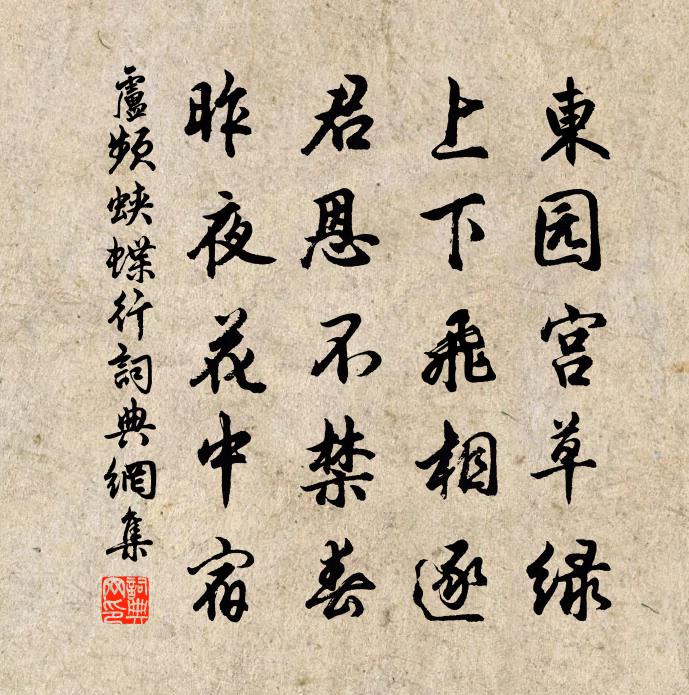 東园宫草绿
上下飛相逐
君恩不禁春
昨夜花中宿
盧頻蛺蝶行詞典網集
詞典
网印